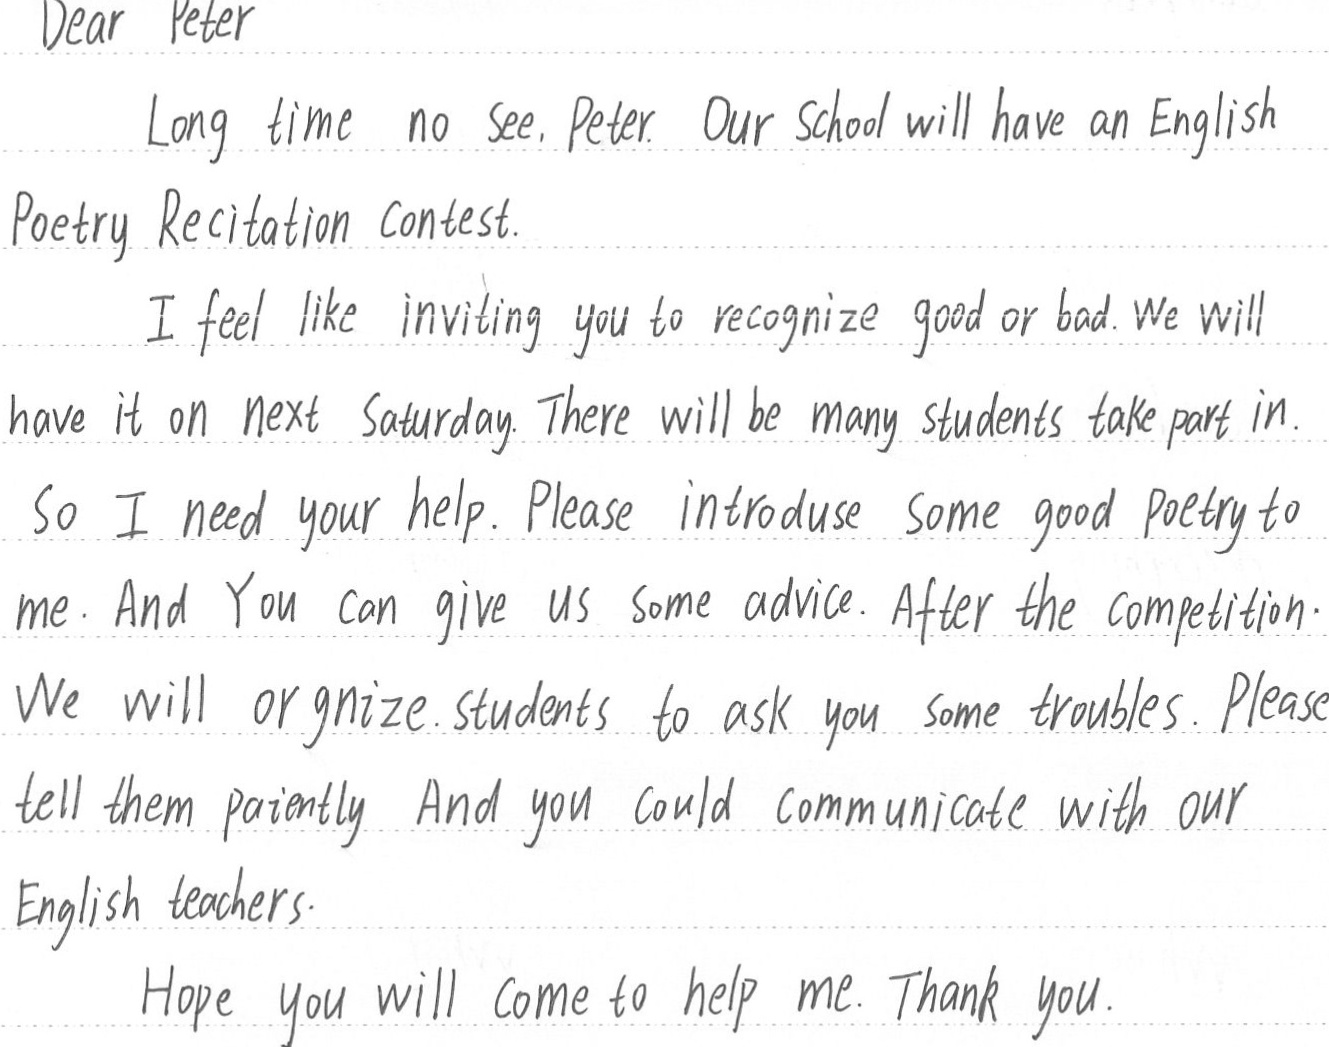 Dear Peter
Long time no see, Peter. Our School will have an English
Poetry Recitation Contest.
I feel like inviting you to recognize good or bad. We will
have it on next Saturday. There will be many students take part in.
So I need your help. Please introduse some good poetry to
me. And You can give us some advice. After the competition.
We will orgnize. students to ask you some troubles. Please
tell them paiently And you could communicate with our
English teachers.
Hope you will come to help me. Thank you.